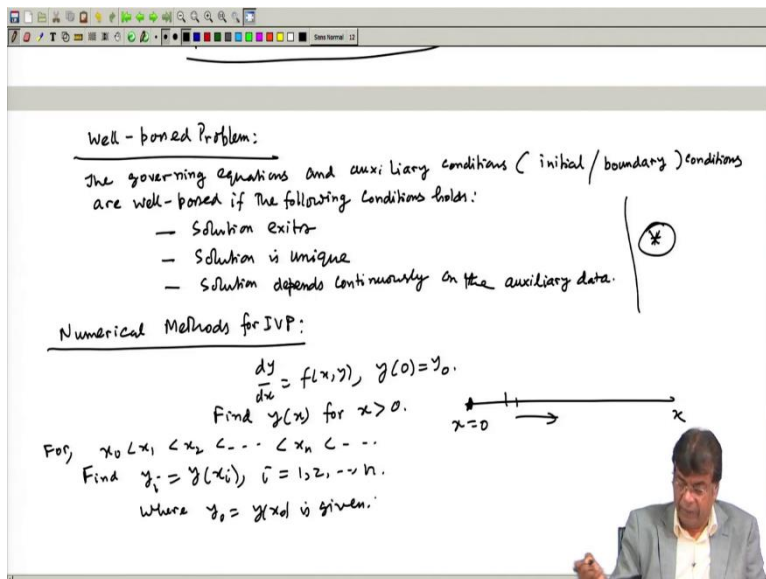 Sans Normal 12
Well-posed Problem:
The governing equations and auxiliary conditions (initial/boundary) conditions
are well-posed if the following conditions holds:
— Solution exits
— Solution is unique
— Solution depends continuously on the auxiliary data.
*
Numerical Methods for IVP:
dy/dx = f(x,y), y(0)=y₀.
Find y(x) for x>0.
x=0 x
For, x₀ < x₁ < x₂ < --- < xₙ < --.
Find yᵢ = y(xᵢ), i = 1,2, --, n.
where y₀ = y(x₀) is given.